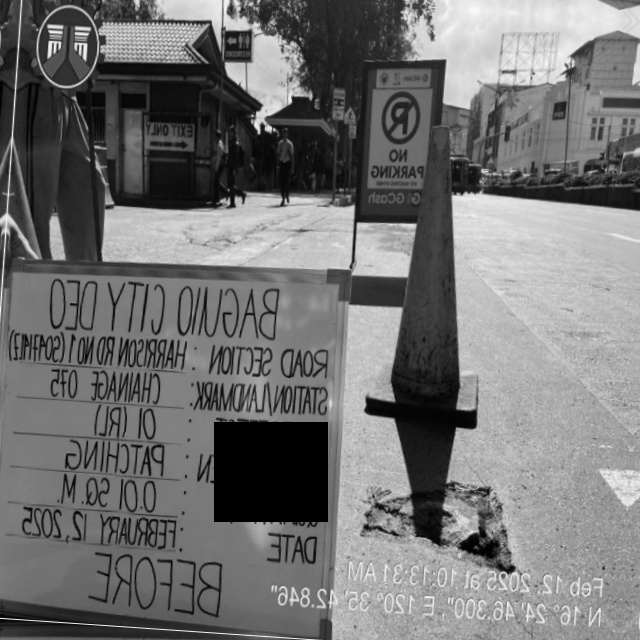 EXIT ONLY
NO
PARKING
GCash
BAGUIO CITY DEO
ROAD SECTION : HARRISON RD NO 1 (S04741LZ)
STATION/LANDMARK : CHAINAGE 075
: 01 (RL)
: PATCHING
: 0.01 SQ. M.
DATE : FEBRUARY 12, 2025
BEFORE
Feb 12, 2025 at 10:13:31 AM
N 16° 24' 46.300", E 120° 35' 42.846"